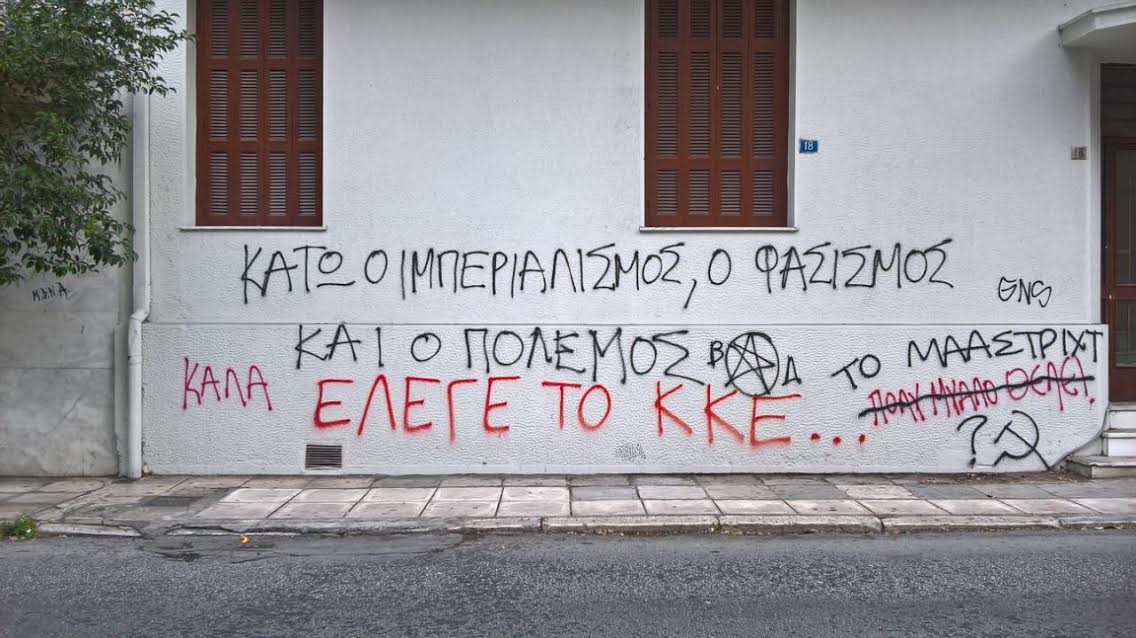 18
18
ΚΑΤΩ Ο ΙΜΠΕΡΙΑΛΙΣΜΟΣ, Ο ΦΑΣΙΣΜΟΣ
GNS
ΚΑΙ Ο ΠΟΛΕΜΟΣ Β Α Δ ΤΟ ΜΑΑΣΤΡΙΧΤ
ΚΑΛΑ ΕΛΕΓΕ ΤΟ ΚΚΕ...
ΠΟΛΥ ΜΥΑΛΟ ΘΕΛΕΙ!
?